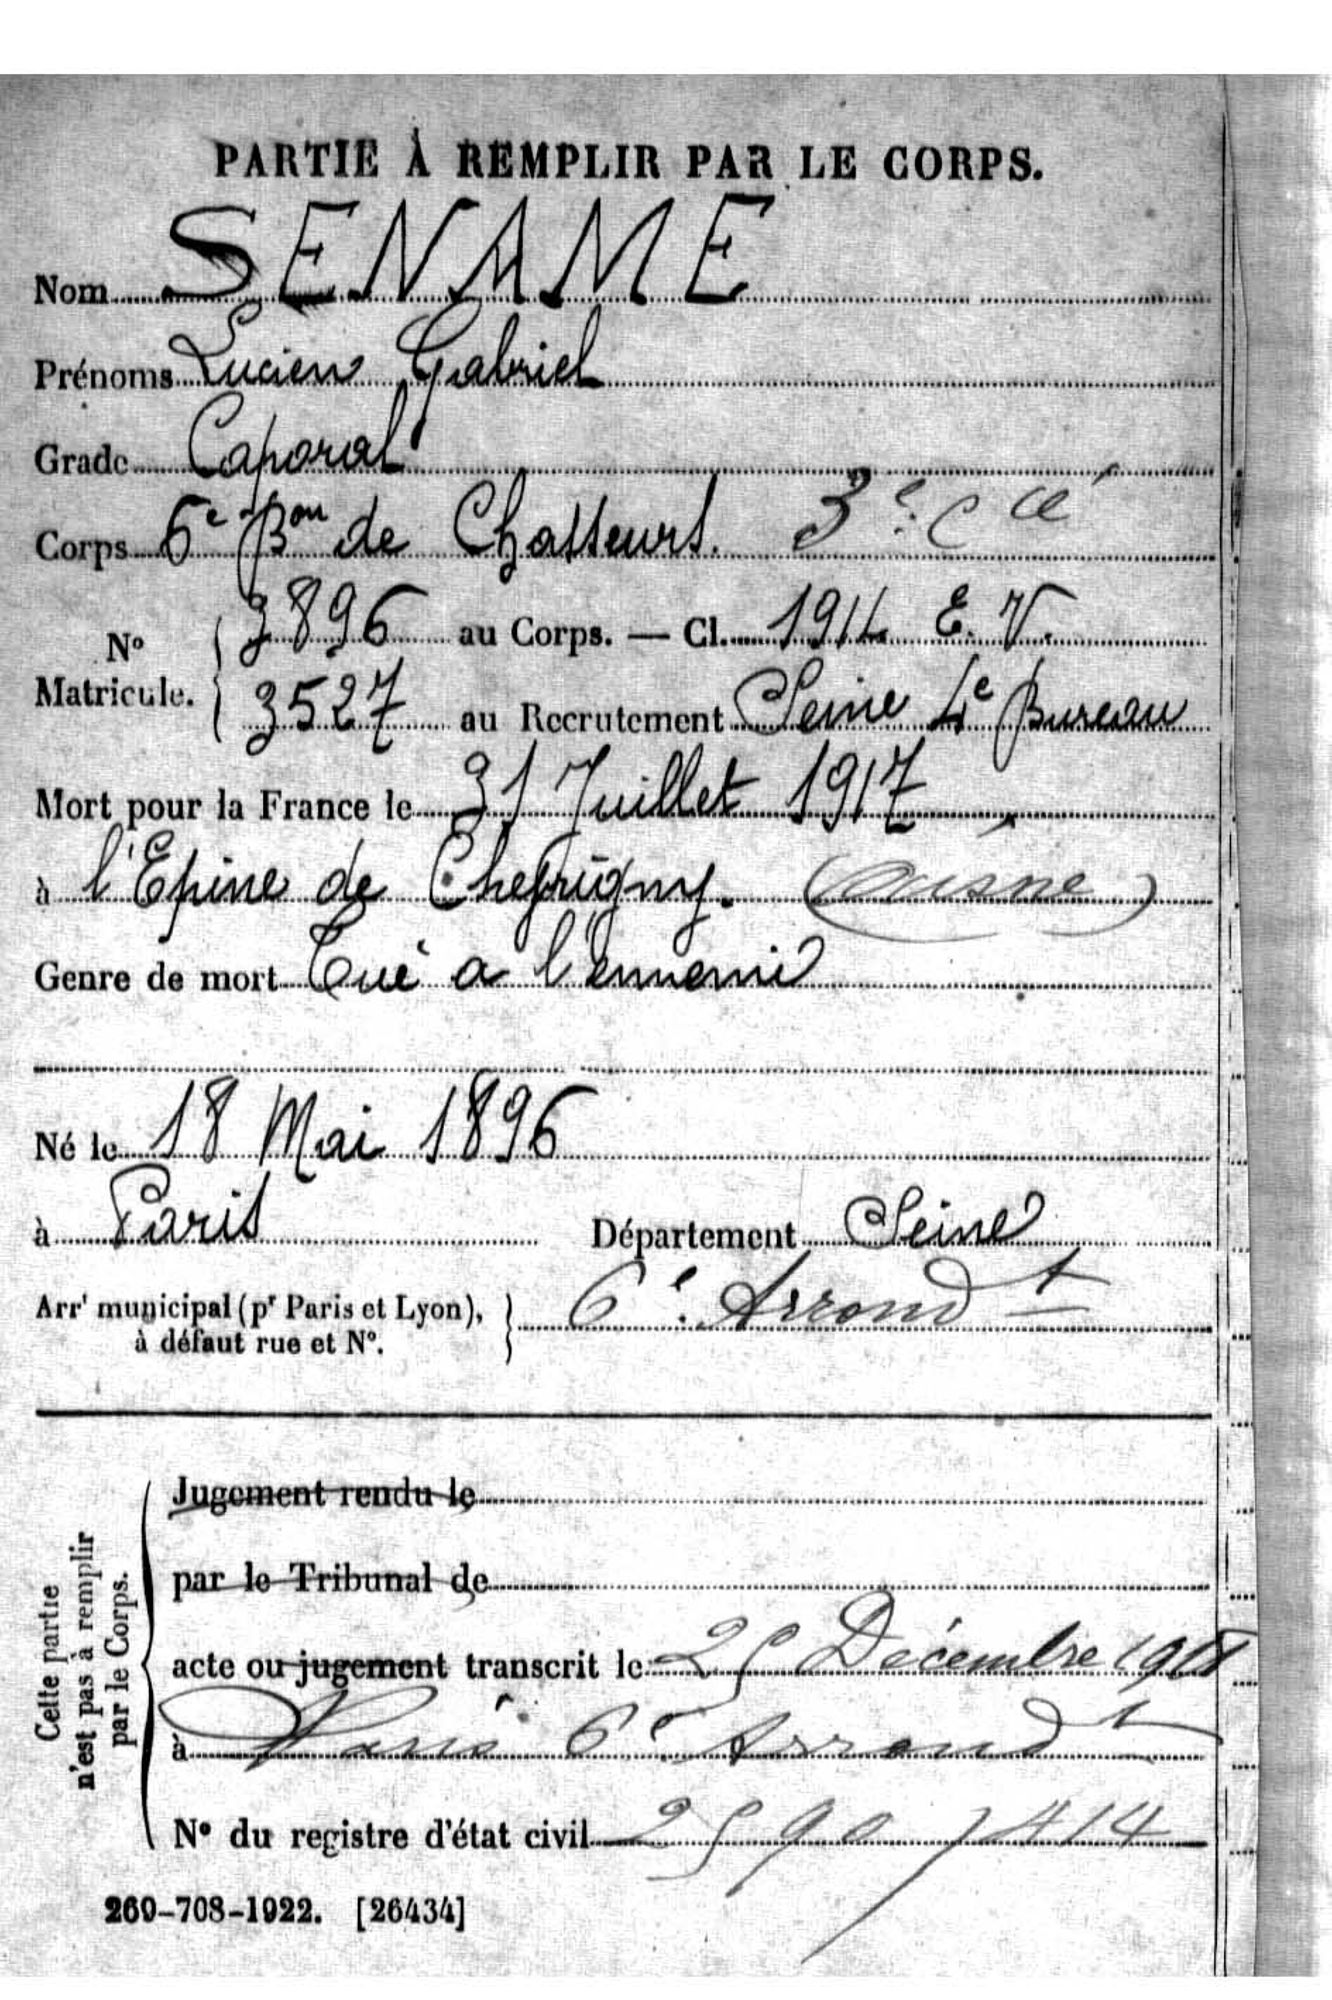 PARTIE À REMPLIR PAR LE CORPS.
Nom SENAME
Prénoms Lucien Gabriel
Grade Caporal
Corps 6e Bon de Chasseurs. 3e Cie
No Matricule. { 3896 au Corps. — Cl. 1914 E. V.
3527 au Recrutement Seine 4e Bureau
Mort pour la France le 31 Juillet 1917
à l'Epine de Chevrigny. (Aisne)
Genre de mort Tué a l'ennemi
Né le 18 Mai 1896
à Paris Département Seine
Arrt municipal (pr Paris et Lyon), à défaut rue et No. } 6e. Arrondt
Cette partie n'est pas à remplir par le Corps.
Jugement rendu le
par le Tribunal de
acte ou jugement transcrit le 25 Décembre
à Paris 6e Arrondt
No du registre d'état civil 2590/414
260-708-1922. [26434]